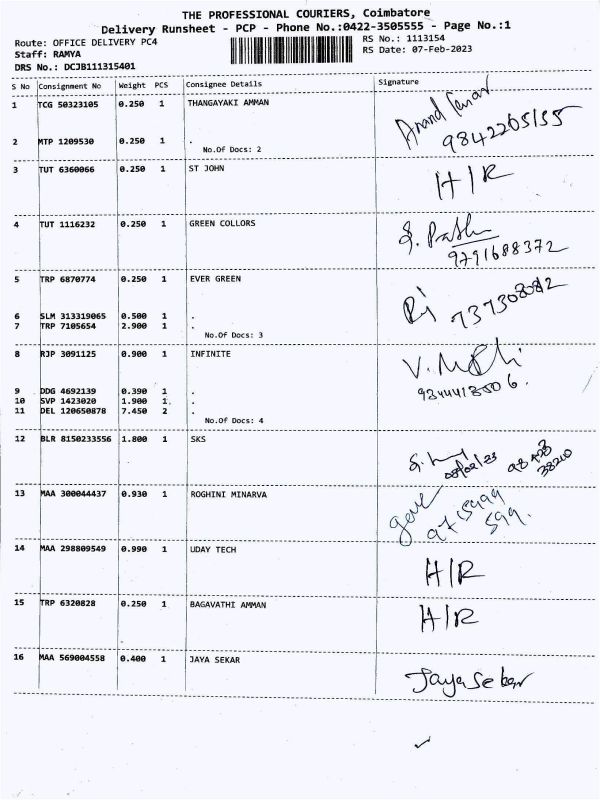 THE PROFESSIONAL COURIERS, Coimbatore
Delivery Runsheet - PCP - Phone No.:0422-3505555 - Page No.:1
Route: OFFICE DELIVERY PC4
RS No.: 1113154
Staff: RAMYA
RS Date: 07-Feb-2023
DRS No.: DCJB111315401
S No Consignment No Weight PCS Consignee Details Signature
1 TCG 50323105 0.250 1 THANGAYAKI AMMAN
Anand
9842205155
2 MTP 1209530 0.250 1 .
No.Of Docs: 2
3 TUT 6360066 0.250 1 ST JOHN
H/R
4 TUT 1116232 0.250 1 GREEN COLLORS
9791688372
5 TRP 6870774 0.250 1 EVER GREEN
6 SLM 313319065 0.500 1 .
7 TRP 7105654 2.900 1 .
No.Of Docs: 3
8 RJP 3091125 0.900 1 INFINITE
9 DDG 4692139 0.390 1 .
10 SVP 1423020 1.900 1 .
11 DEL 120650878 7.450 2 .
No.Of Docs: 4
12 BLR 8150233556 1.800 1 SKS
08/02/23
13 MAA 300044437 0.930 1 ROGHINI MINARVA
14 MAA 298809549 0.990 1 UDAY TECH
H/R
15 TRP 6320828 0.250 1 BAGAVATHI AMMAN
H/R
16 MAA 569004558 0.400 1 JAYA SEKAR
Jayasekar